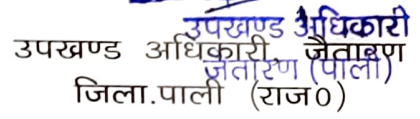 उपखण्ड अधिकारी
उपखण्ड अधिकारी, जैतारण
जैतारण (पाली)
जिला.पाली (राज0)